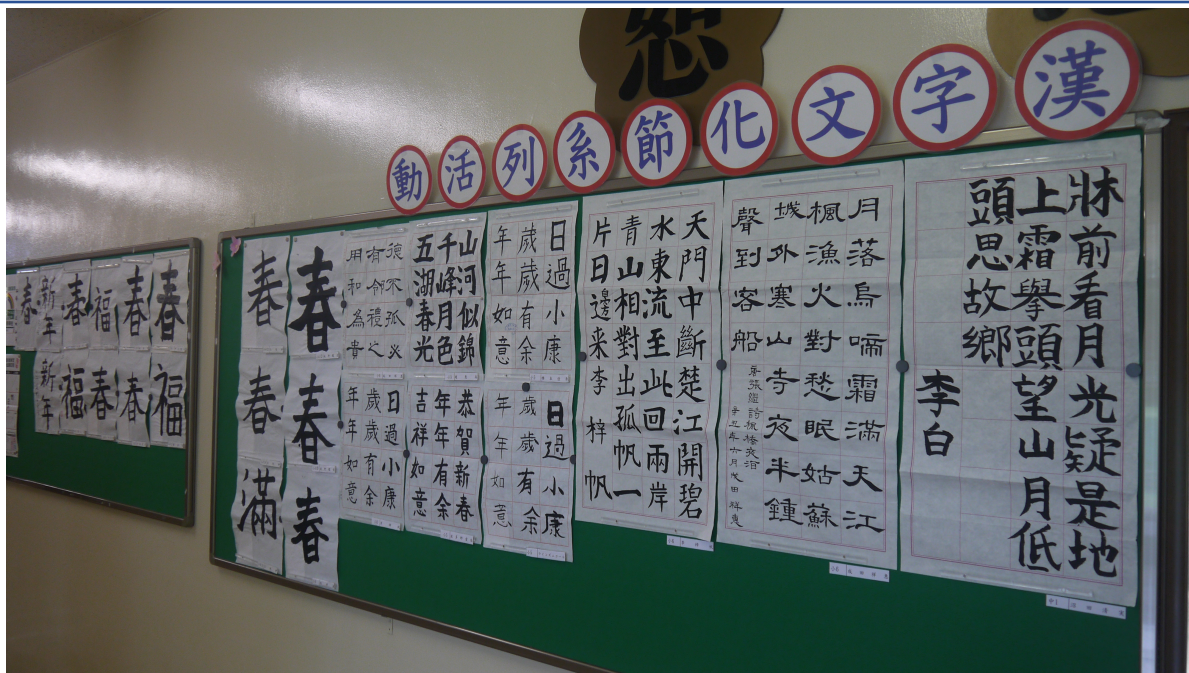 恕
漢字文化節系列活動
牀前看月光疑是地
上霜擧頭望山月低
頭思故鄉
李白
月落烏啼霜滿天江
楓漁火對愁眠姑蘇
城外寒山寺夜半鍾
聲到客船
唐張繼詩楓橋夜泊
天門中斷楚江開碧
水東流至此回兩岸
青山相對出孤帆一
片日邊来李梓帆
日過小康
歲歲有余
年年如意
日過小康
歲歲有余
年年如意
山河似錦
千峰月色
五湖春光
恭賀新春
年年有余
吉祥如意
德不孤必
有鄰禮之
用和為貴
日過小康
歲歲有余
年年如意
春
春
春
春
春
滿
春
福
春
春
福
春
春
福
新年
新年
春